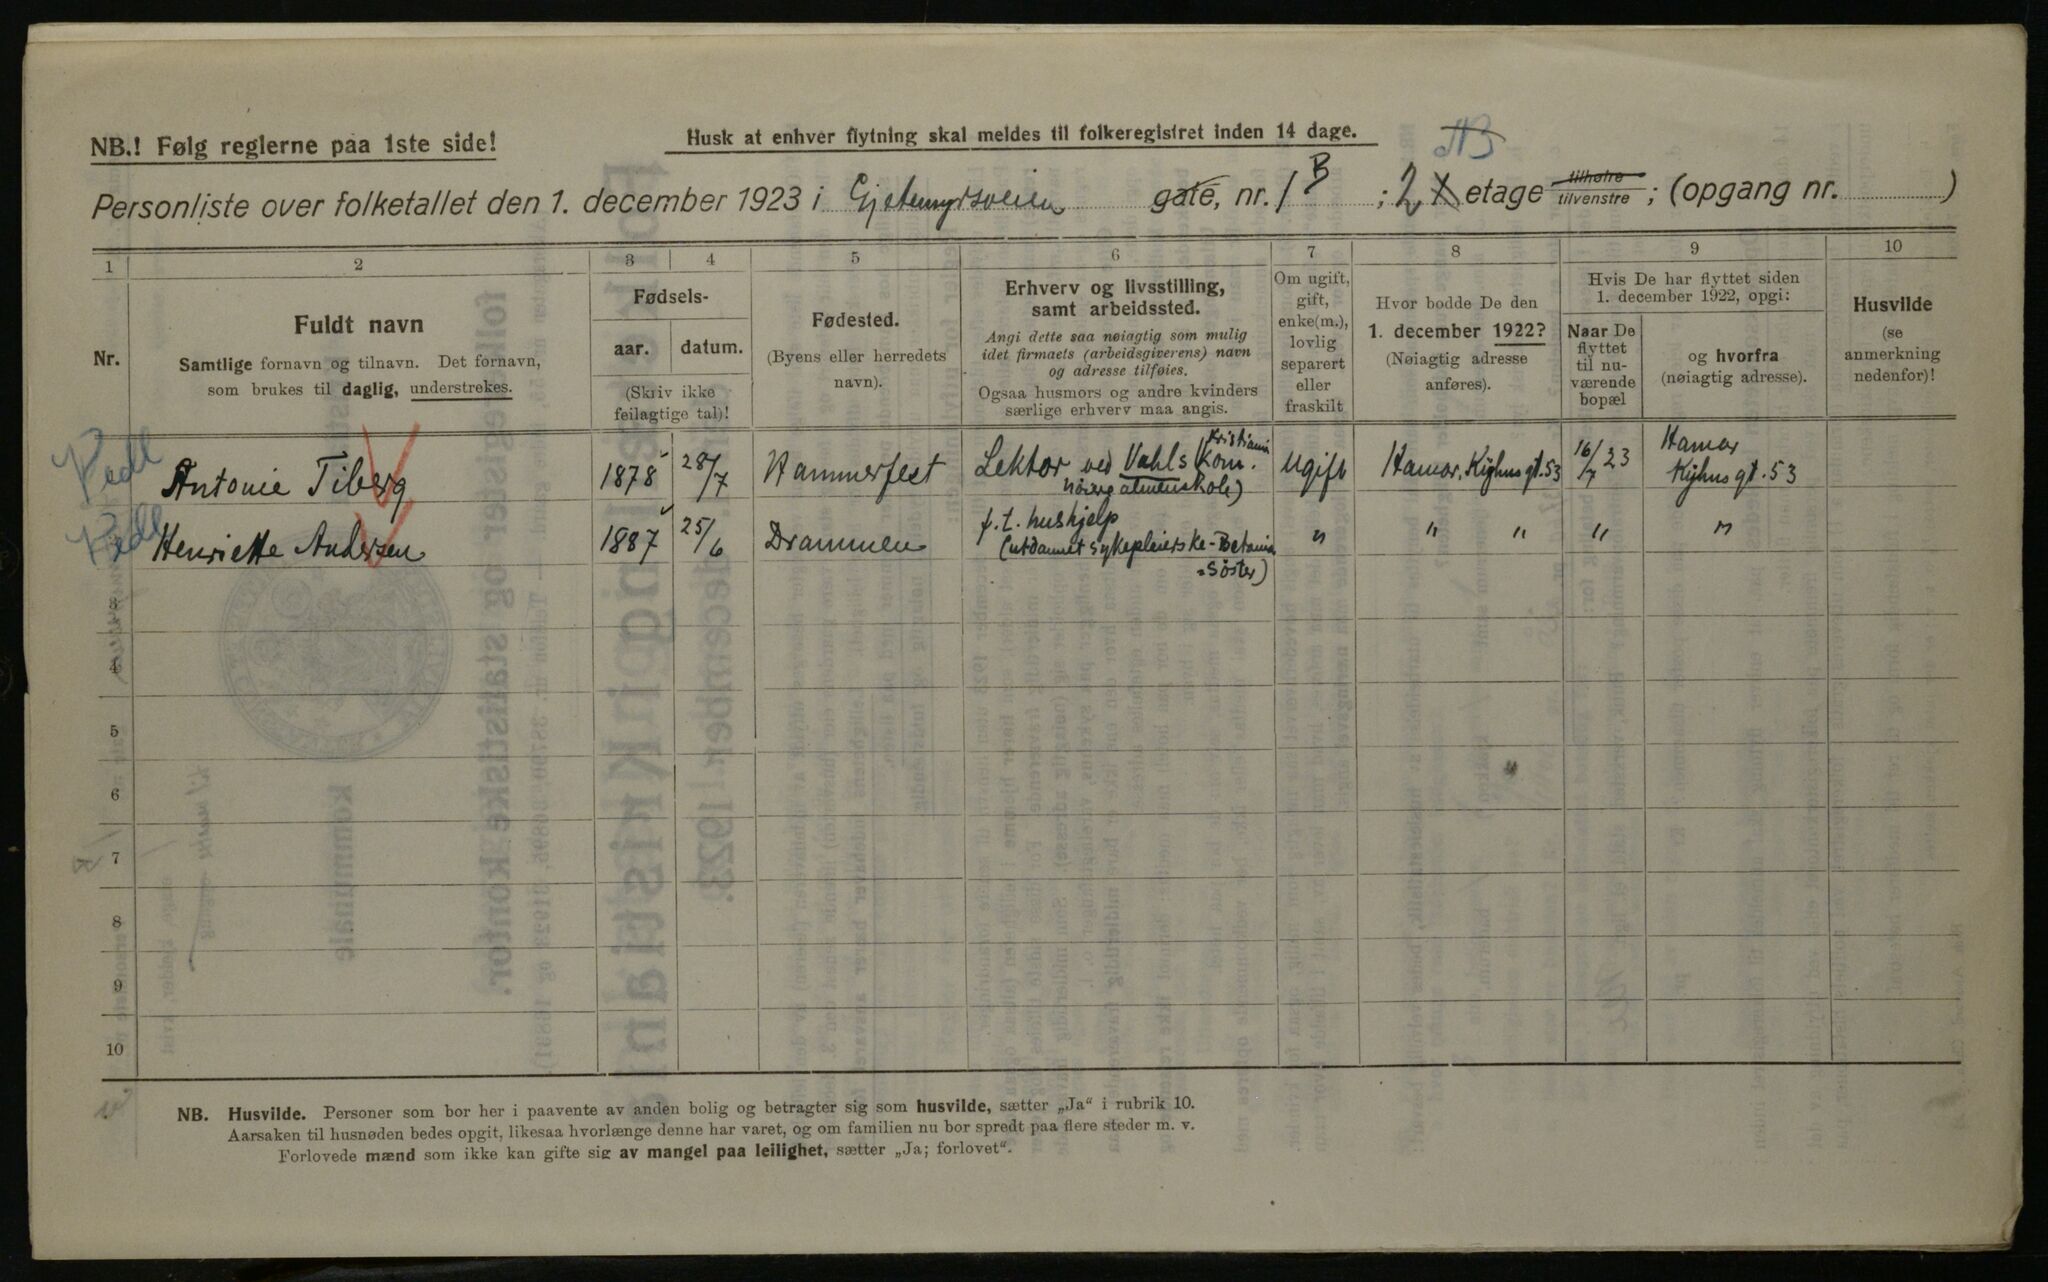 NB.! Følg reglerne paa 1ste side!
Husk at enhver flytning skal meldes til folkeregistret inden 14 dage.
Personliste over folketallet den 1. december 1923 i Gjetemyrsveien gate, nr. 1 B ; 2 etage tilhøire tilvenstre ; (opgang nr. )
1 2 3 4 5 6 7 8 9 10
Nr.
Fuldt navn
Samtlige fornavn og tilnavn. Det fornavn,
som brukes til daglig, understrekes.
Fødsels-
aar. datum.
(Skriv ikke
feilagtige tal)!
Fødested.
(Byens eller herredets
navn).
Erhverv og livsstilling,
samt arbeidssted.
Angi dette saa nøiagtig som mulig
idet firmaets (arbeidsgiverens) navn
og adresse tilføies.
Ogsaa husmors og andre kvinders
særlige erhverv maa angis.
Om ugift,
gift,
enke(m.),
lovlig
separert
eller
fraskilt
Hvor bodde De den
1. december 1922?
(Nøiagtig adresse
anføres).
Hvis De har flyttet siden
1. december 1922, opgi:
Naar De
flyttet
til nu-
værende
bopæl
og hvorfra
(nøiagtig adresse).
Husvilde
(se
anmerkning
nedenfor)!
Antonie Tiberg 1878 28/7 Hammerfest Lektor ved Vahls (Kristiania kom. høiere almenskole) Ugift Hamar, Kirkegt. 53 16/7 23 Hamar
Henriette Andersen 1887 25/6 Drammen f. t. hushjelp
(utdannet sykepleierske - Betania
-søster) " " " " "
3
4
5
6
7
8
9
10
NB. Husvilde. Personer som bor her i paavente av anden bolig og betragter sig som husvilde, sætter „Ja“ i rubrik 10.
Aarsaken til husnøden bedes opgit, likesaa hvorlænge denne har varet, og om familien nu bor spredt paa flere steder m. v.
Forlovede mænd som ikke kan gifte sig av mangel paa leilighet, sætter „Ja; forlovet“.